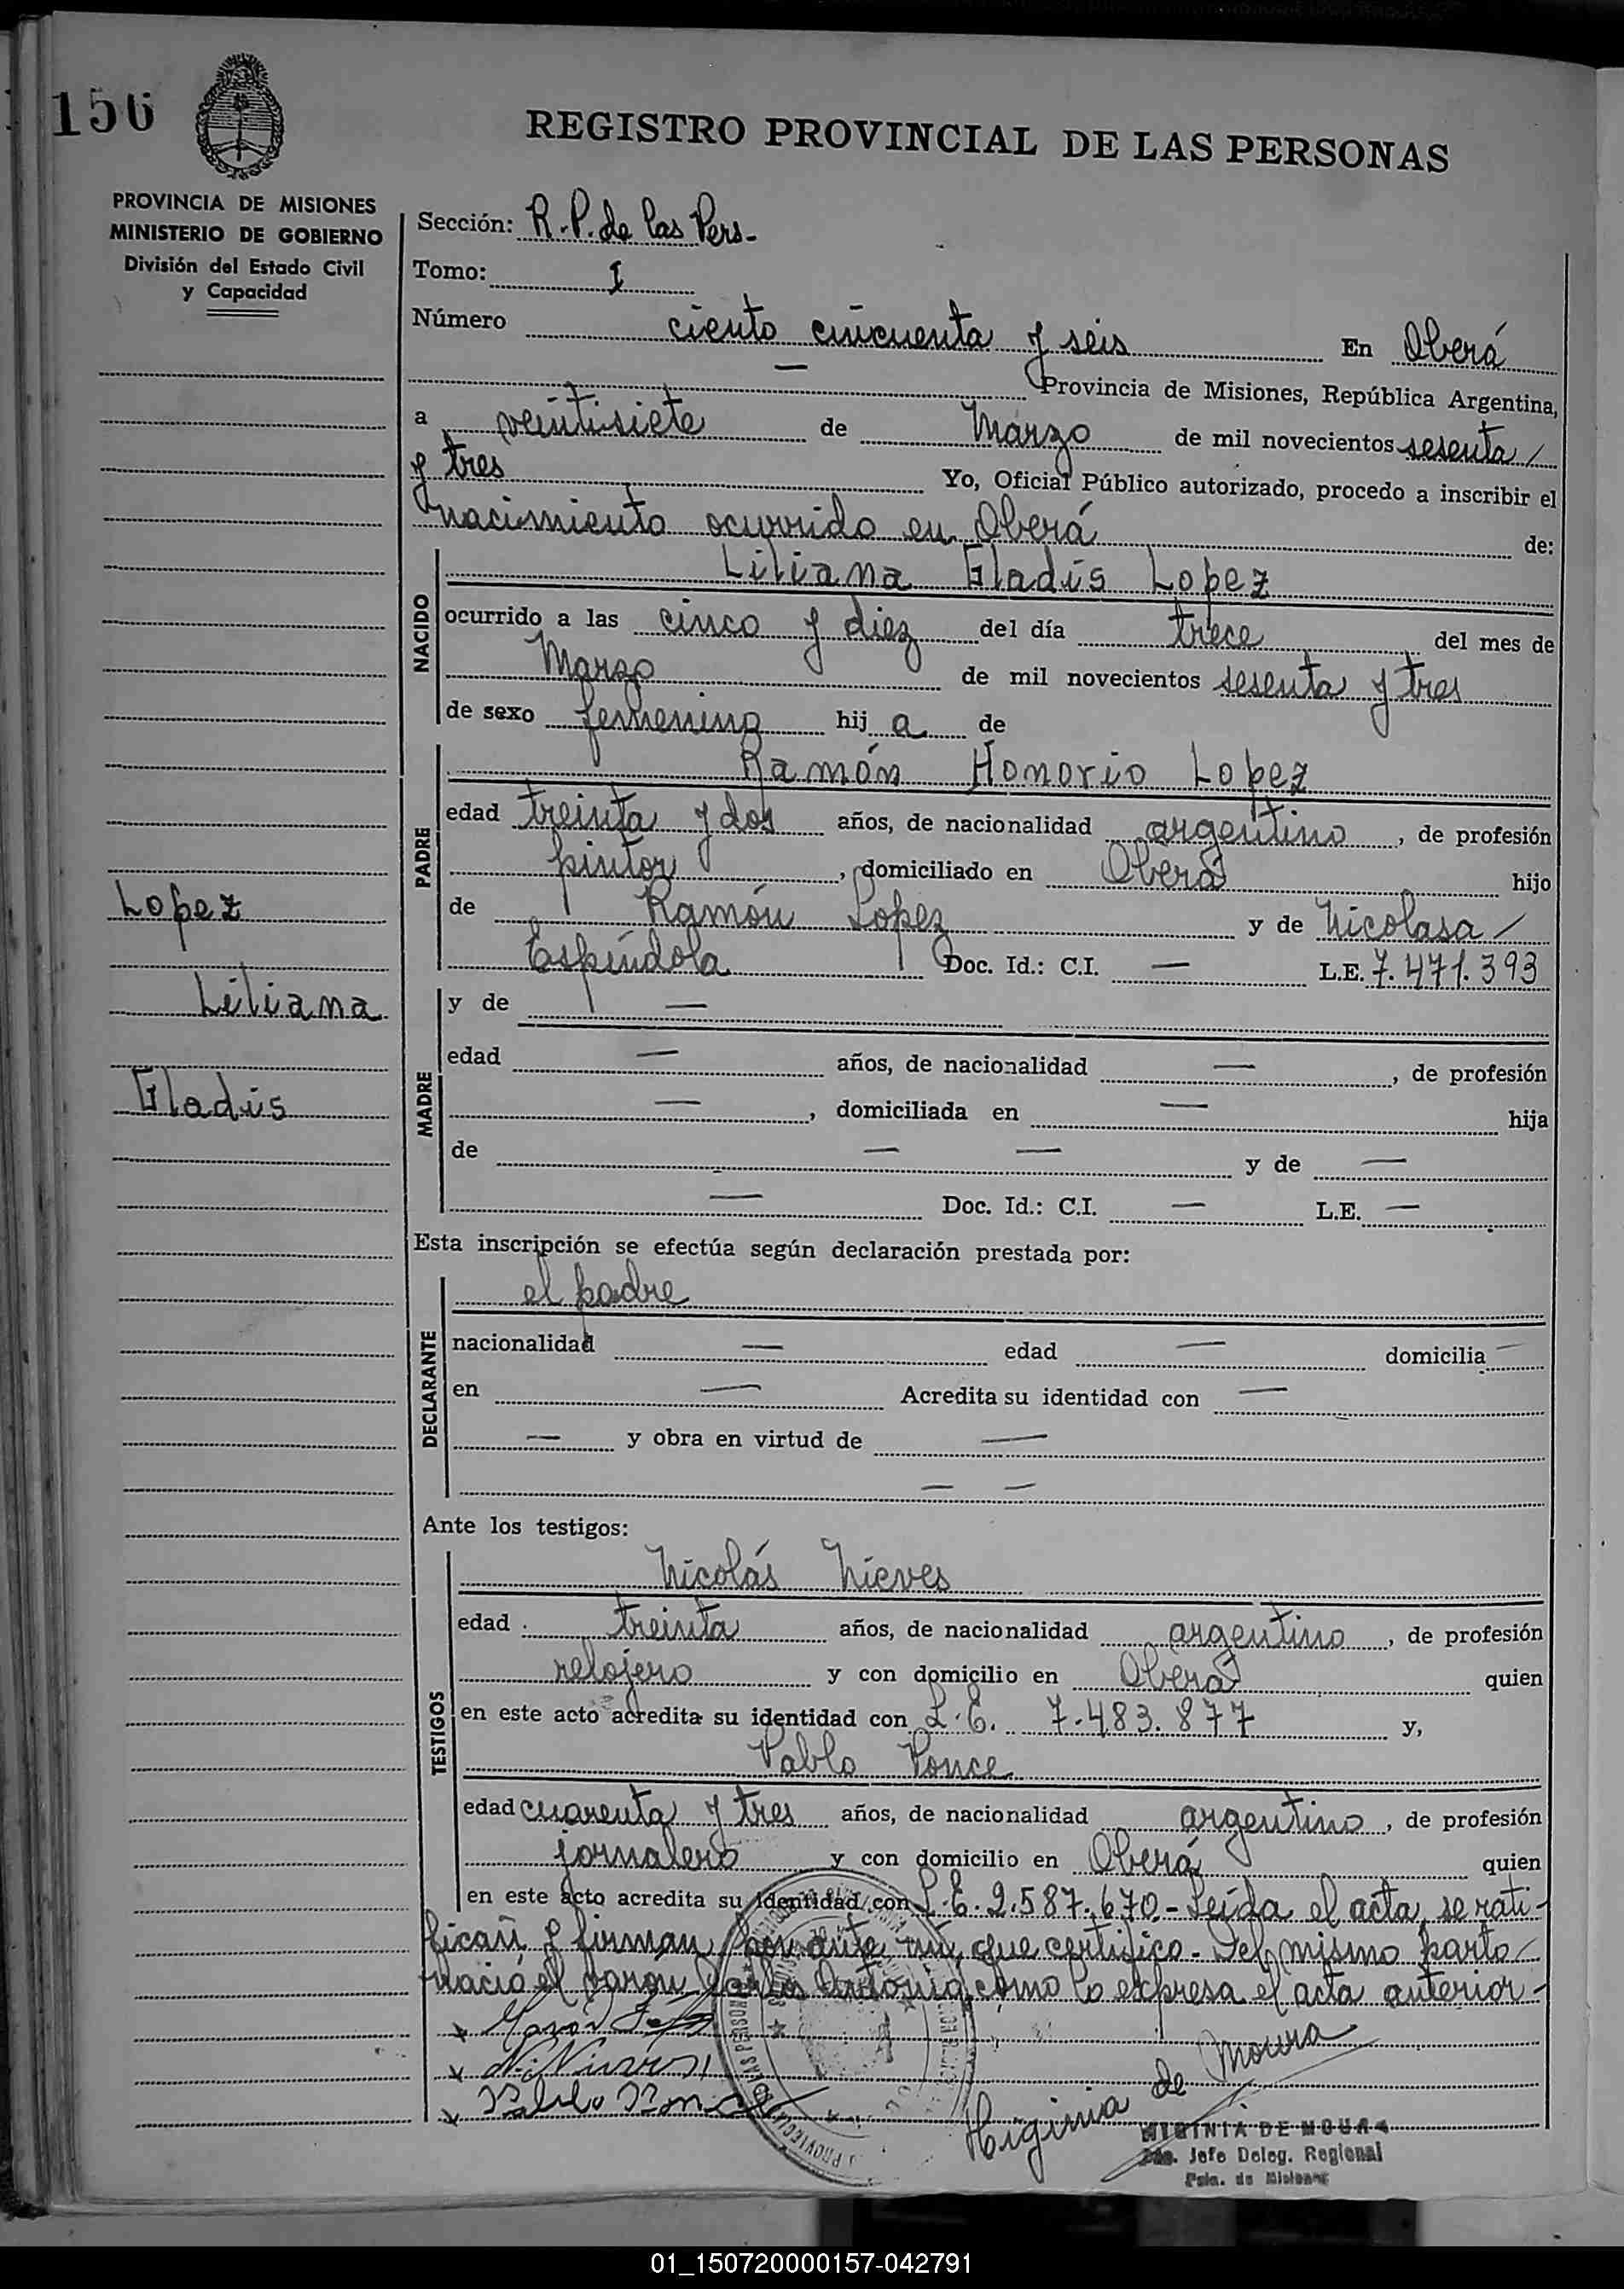 156
REGISTRO PROVINCIAL DE LAS PERSONAS
PROVINCIA DE MISIONES
MINISTERIO DE GOBIERNO
División del Estado Civil
y Capacidad
Sección: R.P. de las Pers-
Tomo: I
Número ciento cincuenta y seis En Oberá
— Provincia de Misiones, República Argentina,
a veintisiete de Marzo de mil novecientos sesenta /
y tres Yo, Oficial Público autorizado, procedo a inscribir el
nacimiento ocurrido en Oberá de:
NACIDO
Liliana Gladis Lopez
ocurrido a las cinco y diez del día trece del mes de
Marzo de mil novecientos sesenta y tres
de sexo femenino hij a de
PADRE
Ramón Honorio Lopez
edad treinta y dos años, de nacionalidad argentino, de profesión
pintor, domiciliado en Oberá hijo
de Ramón Lopez y de Nicolasa /
Espíndola Doc. Id.: C.I. — L.E. 7.471.393
Lopez
Liliana
Gladis
MADRE
y de —
edad — años, de nacionalidad —, de profesión
—, domiciliada en — hija
de — — y de —
— Doc. Id.: C.I. — L.E. —
Esta inscripción se efectúa según declaración prestada por:
DECLARANTE
el padre
nacionalidad — edad — domicilia —
en — Acredita su identidad con —
— y obra en virtud de —
— —
Ante los testigos:
TESTIGOS
Nicolás Nieves
edad treinta años, de nacionalidad argentino, de profesión
relojero y con domicilio en Oberá quien
en este acto acredita su identidad con L.E. 7.483.877 y,
Pablo Ponce
edad cuarenta y tres años, de nacionalidad argentino, de profesión
jornalero y con domicilio en Oberá quien
en este acto acredita su identidad con L.E. 2.587.670.- Leída el acta, se rati-
fican y firman por ante mí, que certifico.- Del mismo parto /
nació el varón Antonio, como lo expresa el acta anterior-
Higinia de Moura
HIGINIA DE MOURA
Jefe Deleg. Regional
Pcia. de Misiones
01_150720000157-042791